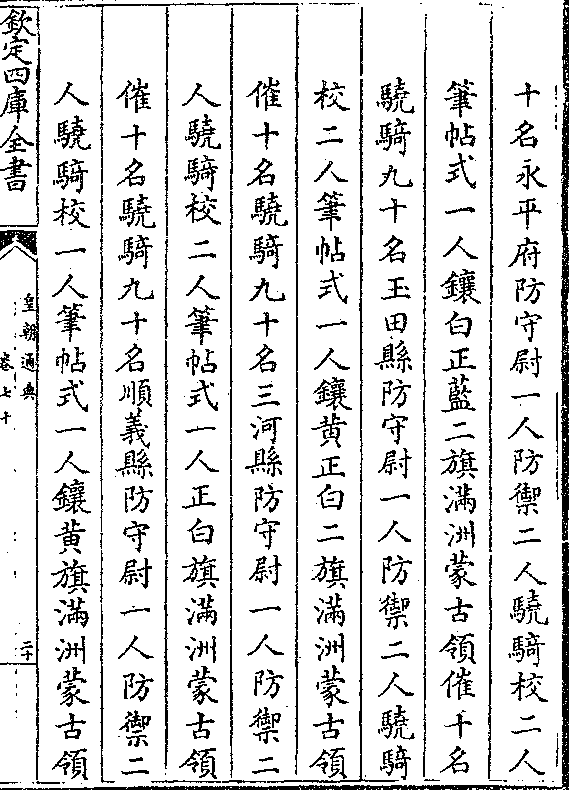 十名永平府防守尉一人防禦二人驍騎校二人
筆帖式一人鑲白正藍二旗滿洲蒙古領催十名
驍騎九十名玉田縣防守尉一人防禦二人驍騎
校二人筆帖式一人鑲黄正白二旗滿洲蒙古領
催十名驍騎九十名三河縣防守尉一人防禦二
人驍騎校二人筆帖式一人正白旗滿洲蒙古領
催十名驍騎九十名順義縣防守尉一人防禦二
人驍騎校一人筆帖式一人鑲黄旗滿洲蒙古領
欽定四庫全書
皇朝通典
卷七十
二十